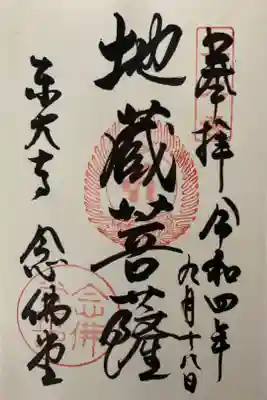 奉拝 令和四年
九月十八日
地蔵菩薩
東大寺 念佛堂